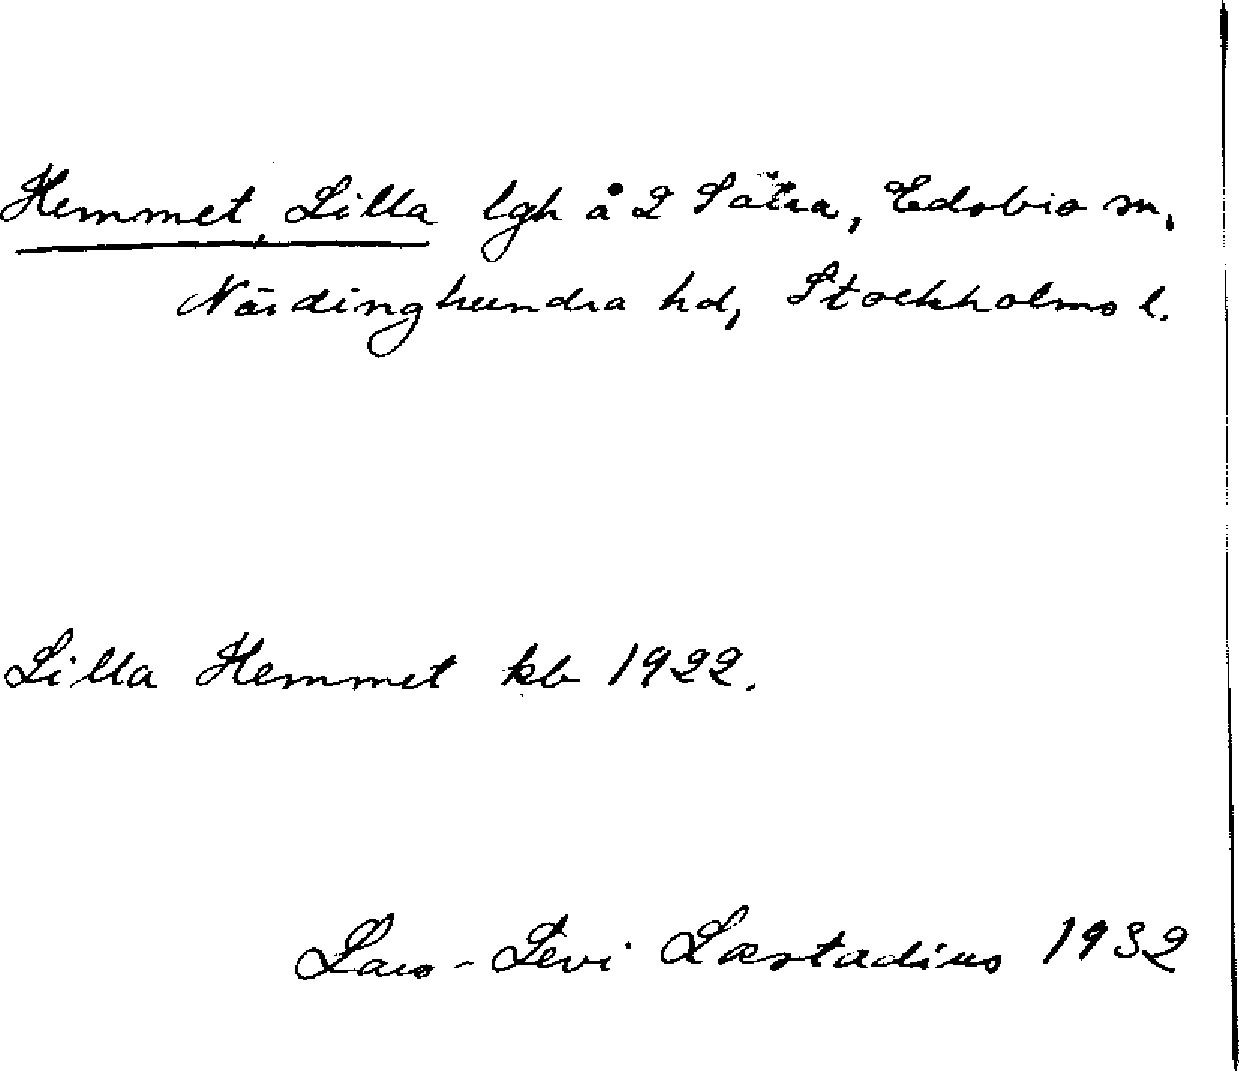 Hemmet, Lilla lgh å 2 Sätra, Edsbro sn,
Närdinghundra hd, Stockholms l.
Lilla Hemmet kb 1922.
Lars-Levi Læstadius 1932